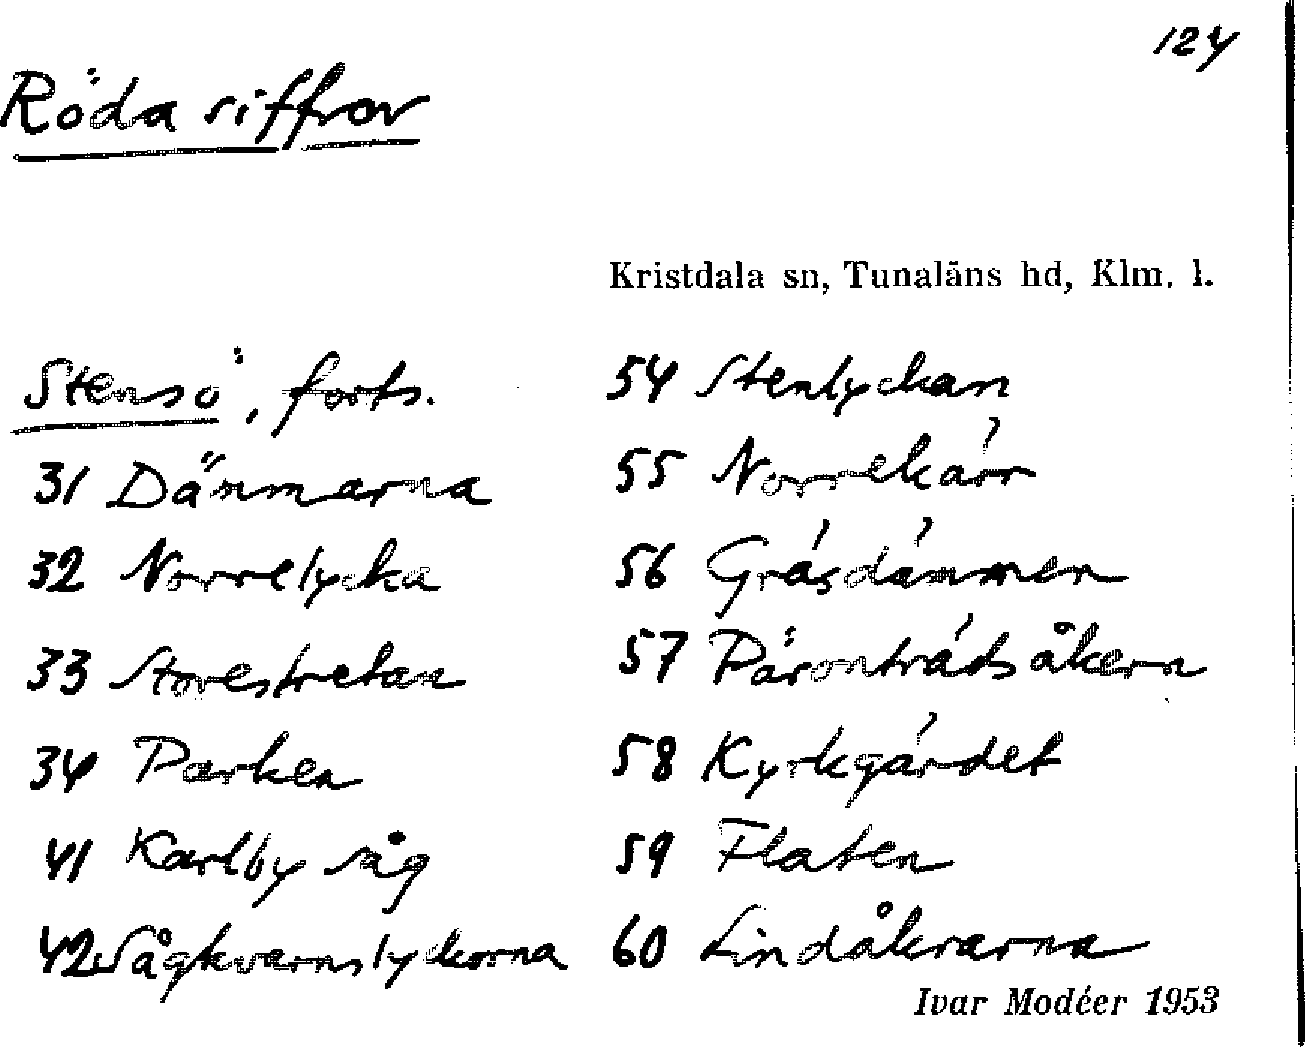 124
Röda siffror
Kristdala sn, Tunaläns hd, Klm. l.
Stensö, forts.
31 Dämmarna
32 Norrelycka
33 Storestretan
34 Parken
41 Karlby såg
42 Sågkvarnslyckorna
54 Stenlyckan
55 Norrekärr
56 Gräsdämmen
57 Päronträdsåkern
58 Kyrkgärdet
59 Flaten
60 Lindåkrarna
Ivar Modéer 1953